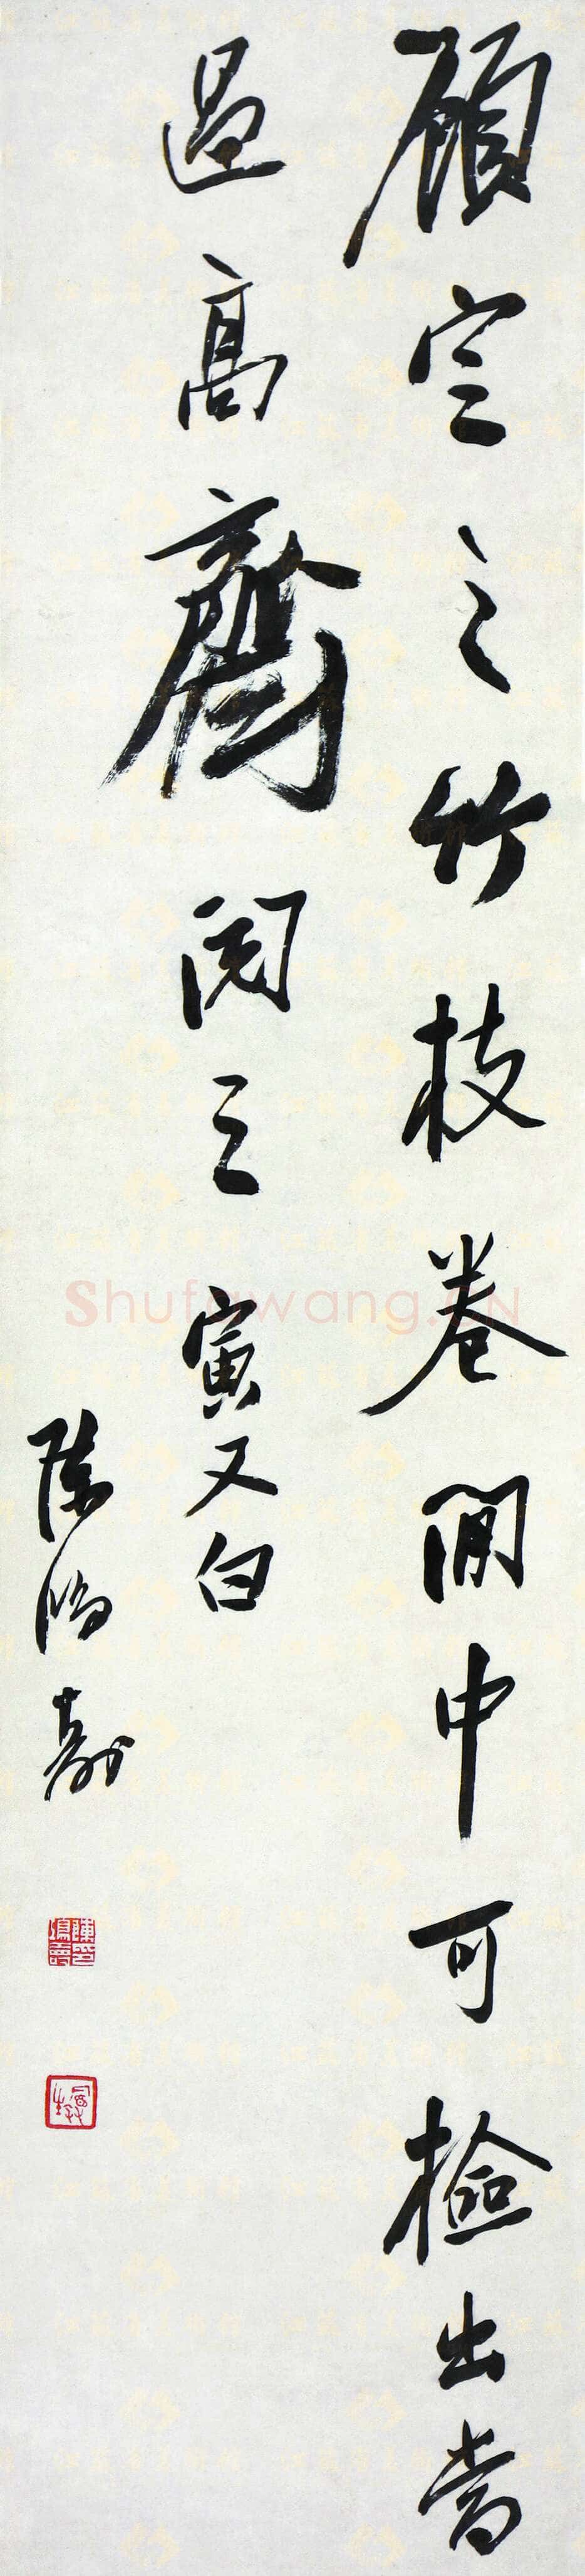 顧定之竹枝卷閒中可檢出當
過高齋閱之寅又白
陳鴻壽
陳印鴻壽
曼生
Shufawang.CN